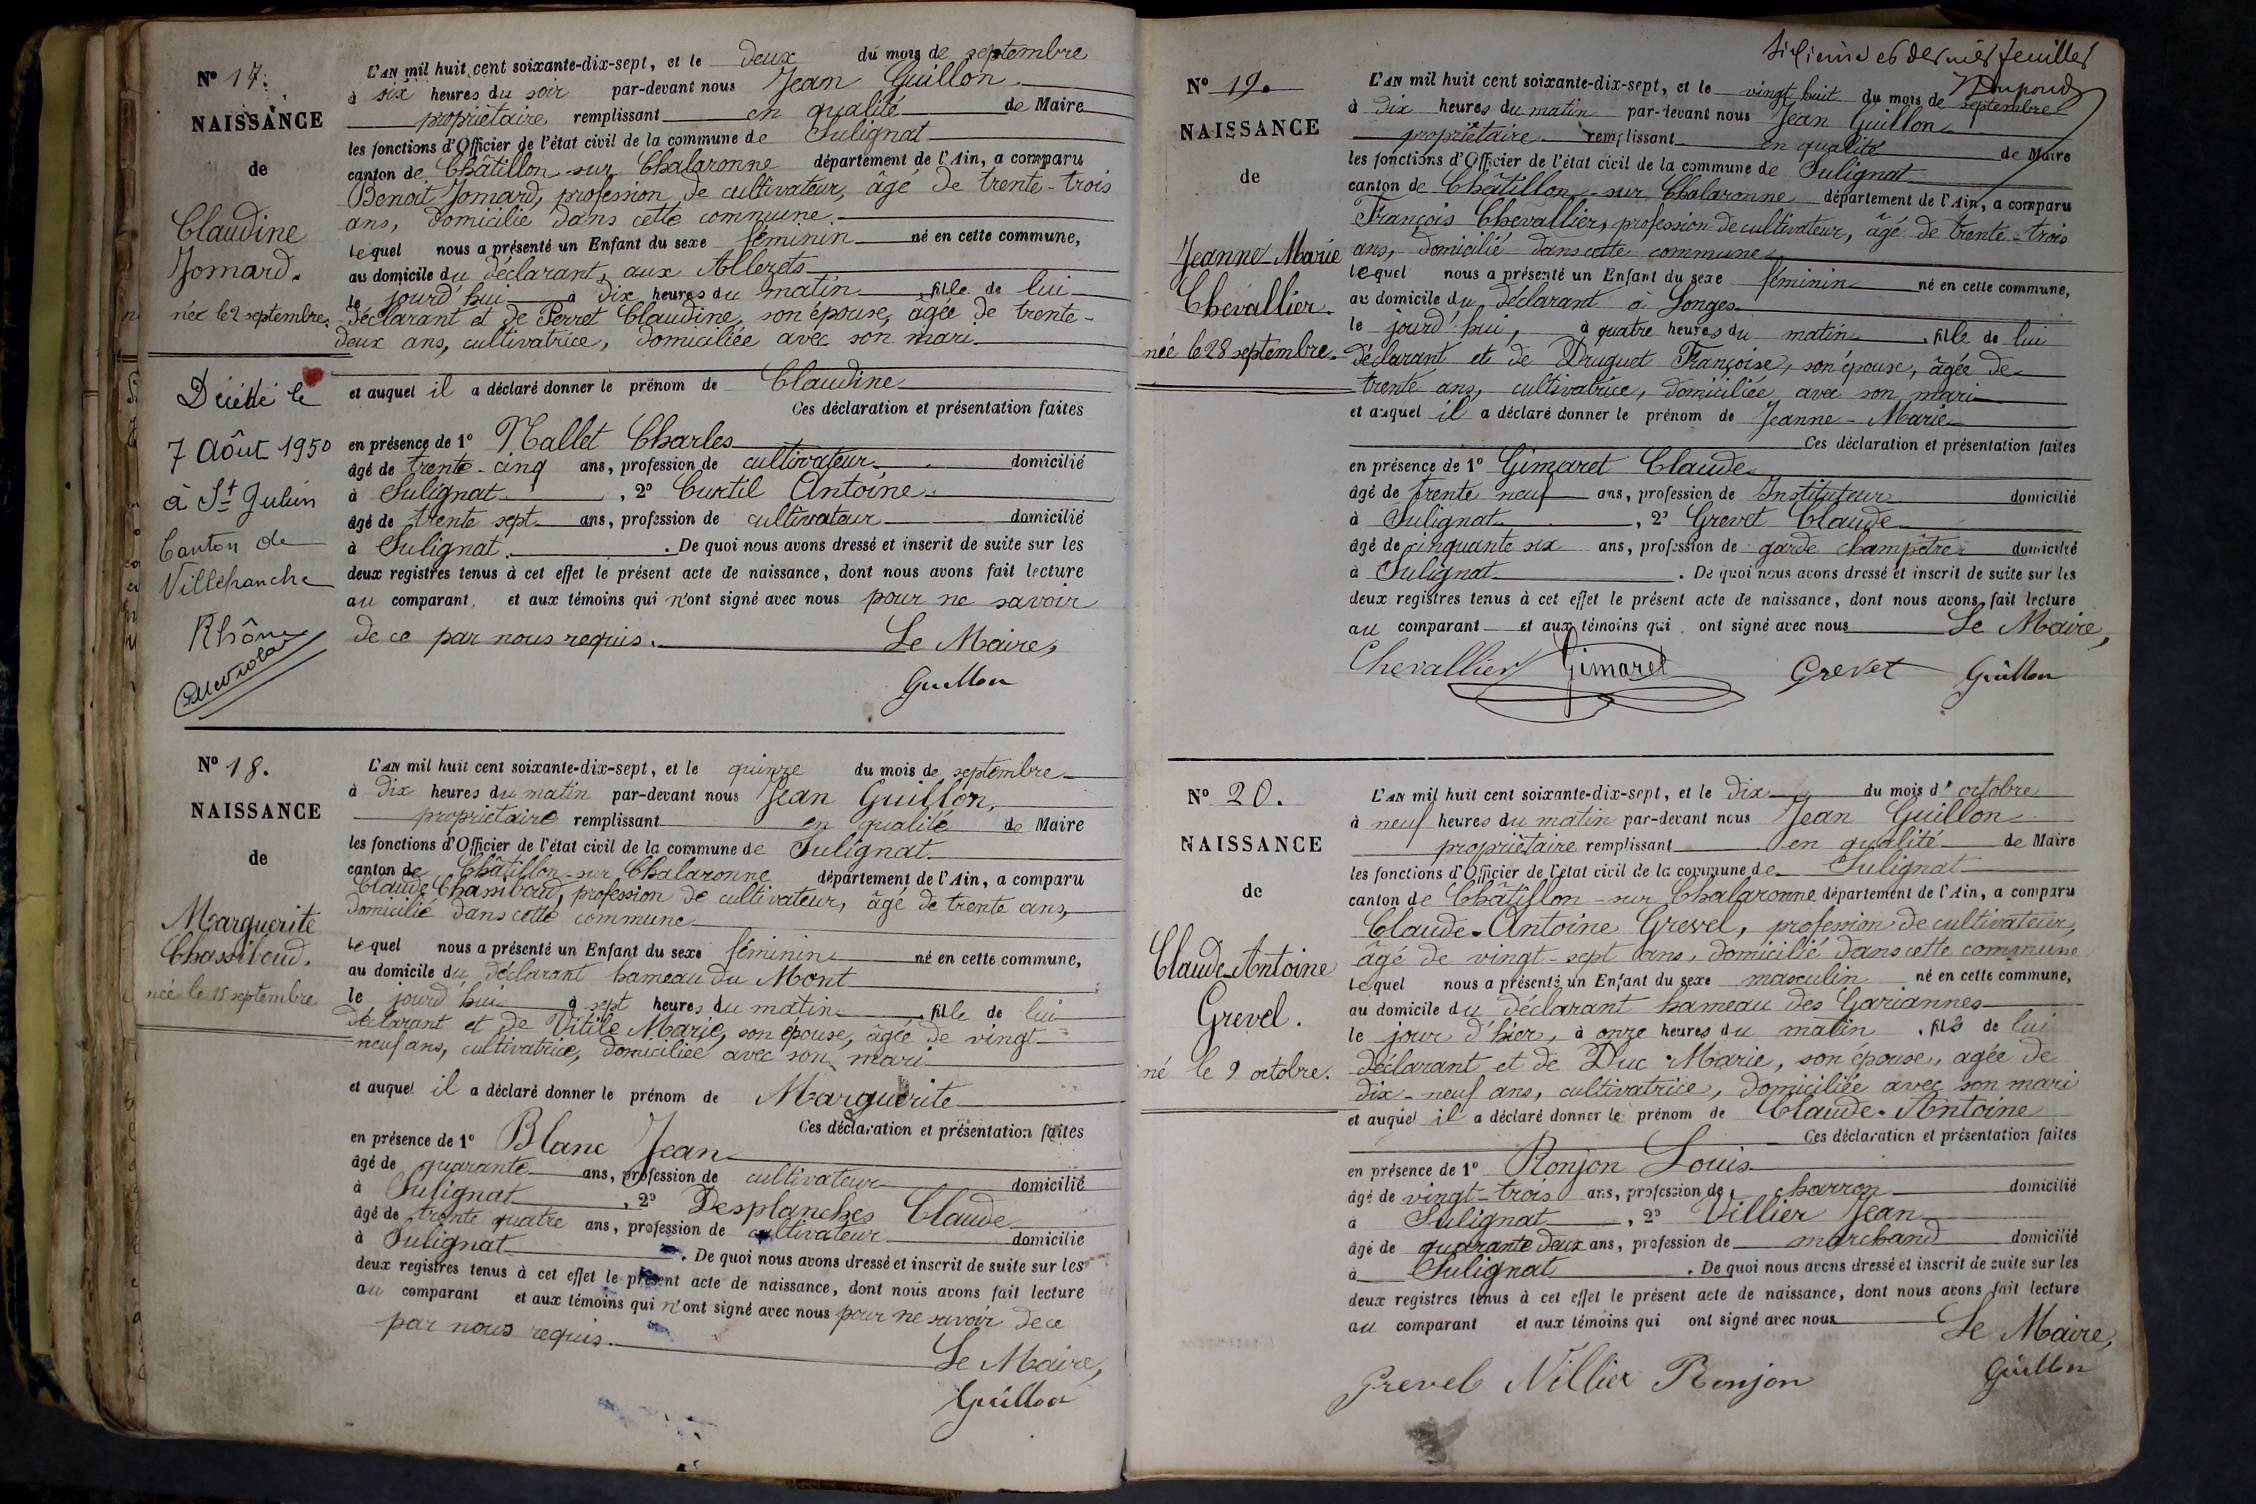 Nº 17.
NAISSANCE
de
Claudine
Jomard.
née le 2 septembre.
Décédé le
7 Août 1950
à St Julien
Canton de
Villefranche
Rhône
L'AN mil huit cent soixante-dix-sept, et le deux du mois de septembre
à six heures du soir par-devant nous Jean Guillon
propriétaire remplissant en qualité de Maire
les fonctions d'Officier de l'état civil de la commune de Sulignat
canton de Châtillon-sur-Chalaronne département de l'Ain, a comparu
Benoit Jomard, profession de cultivateur, âgé de trente-trois
ans, domicilié dans cette commune.
lequel nous a présenté un Enfant du sexe féminin né en cette commune,
au domicile du déclarant, aux Allezets
le jourd'hui à dix heures du matin fille de lui
déclarant et de Perret Claudine, son épouse, âgée de trente-
deux ans, cultivatrice, domiciliée avec son mari
et auquel il a déclaré donner le prénom de Claudine
Ces déclaration et présentation faites
en présence de 1º Mallet Charles
âgé de trente-cinq ans, profession de cultivateur domicilié
à Sulignat, 2º Curtil Antoine
âgé de trente sept ans, profession de cultivateur domicilié
à Sulignat. De quoi nous avons dressé et inscrit de suite sur les
deux registres tenus à cet effet le présent acte de naissance, dont nous avons fait lecture
au comparant, et aux témoins qui n'ont signé avec nous pour ne savoir
de ce par nous requis. Le Maire,
Guillon
Nº 18.
NAISSANCE
de
Marguerite
Chassiboud.
née le 15 septembre
L'AN mil huit cent soixante-dix-sept, et le quinze du mois de septembre
à dix heures du matin par-devant nous Jean Guillon,
propriétaire remplissant en qualité de Maire
les fonctions d'Officier de l'état civil de la commune de Sulignat
canton de Châtillon-sur-Chalaronne département de l'Ain, a comparu
Claude Chassiboud, profession de cultivateur, âgé de trente ans,
domicilié dans cette commune
lequel nous a présenté un Enfant du sexe féminin né en cette commune,
au domicile du déclarant hameau du Mont
le jourd'hui à sept heures du matin, fille de lui
déclarant et de Vitile Marie, son épouse, âgée de vingt-
neuf ans, cultivatrice, domiciliée avec son mari
et auquel il a déclaré donner le prénom de Marguerite
Ces déclaration et présentation faites
en présence de 1º Blanc Jean
âgé de quarante ans, profession de cultivateur domicilié
à Sulignat, 2º Desplanches Claude
âgé de trente quatre ans, profession de cultivateur domicilié
à Sulignat. De quoi nous avons dressé et inscrit de suite sur les
deux registres tenus à cet effet le présent acte de naissance, dont nous avons fait lecture
au comparant et aux témoins qui n'ont signé avec nous pour ne savoir de ce
par nous requis.
Le Maire,
Guillon
et dernier feuillet
Nº 19.
NAISSANCE
de
Jeanne-Marie
Chevallier.
née le 28 septembre.
L'AN mil huit cent soixante-dix-sept, et le vingt huit du mois de septembre
à dix heures du matin par-devant nous Jean Guillon
propriétaire remplissant en qualité de Maire
les fonctions d'Officier de l'état civil de la commune de Sulignat
canton de Châtillon-sur-Chalaronne département de l'Ain, a comparu
François Chevallier, profession de cultivateur, âgé de trente-trois
ans, domicilié dans cette commune
lequel nous a présenté un Enfant du sexe féminin né en cette commune,
au domicile du déclarant à Longes
le jourd'hui, à quatre heures du matin, fille de lui
déclarant et de Druguet Françoise, son épouse, âgée de
trente ans, cultivatrice, domiciliée avec son mari
et auquel il a déclaré donner le prénom de Jeanne-Marie
Ces déclaration et présentation faites
en présence de 1º Gimaret Claude
âgé de trente neuf ans, profession de Instituteur domicilié
à Sulignat, 2º Grevet Claude
âgé de cinquante six ans, profession de garde champêtre domicilié
à Sulignat. De quoi nous avons dressé et inscrit de suite sur les
deux registres tenus à cet effet le présent acte de naissance, dont nous avons fait lecture
au comparant et aux témoins qui ont signé avec nous Le Maire,
Chevallier Gimaret Grevet Guillon
Nº 20.
NAISSANCE
de
Claude-Antoine
Grevel.
né le 9 octobre.
L'AN mil huit cent soixante-dix-sept, et le dix du mois d'octobre
à neuf heures du matin par-devant nous Jean Guillon
propriétaire remplissant en qualité de Maire
les fonctions d'Officier de l'état civil de la commune de Sulignat
canton de Châtillon-sur-Chalaronne département de l'Ain, a comparu
Claude-Antoine Grevel, profession de cultivateur,
âgé de vingt-sept ans, domicilié dans cette commune
lequel nous a présenté un Enfant du sexe masculin né en cette commune,
au domicile du déclarant hameau des Gariannes
le jour d'hier, à onze heures du matin, fils de lui
déclarant et de Duc Marie, son épouse, agée de
dix-neuf ans, cultivatrice, domiciliée avec son mari
et auquel il a déclaré donner le prénom de Claude-Antoine
Ces déclaration et présentation faites
en présence de 1º Ronjon Louis
âgé de vingt-trois ans, profession de charron domicilié
à Sulignat, 2º Villier Jean
âgé de quarante deux ans, profession de marchand domicilié
à Sulignat. De quoi nous avons dressé et inscrit de suite sur les
deux registres tenus à cet effet le présent acte de naissance, dont nous avons fait lecture
au comparant et aux témoins qui ont signé avec nous
Le Maire,
Grevel Villier Ronjon Guillon